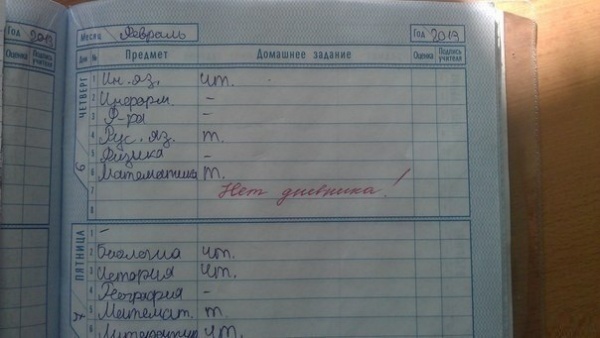 Год 2013 Месяц Февраль Год 2013
Оценка Подпись учителя Дни № Предмет Домашнее задание Оценка Подпись учителя
ЧЕТВЕРГ
1 Ин. яз. чт.
2 Информ. -
3 Ф-ра -
4 Рус. яз. т.
5 Физика -
6 Математика т.
6
7 Нет дневника!
8
ПЯТНИЦА
1 -
2 Биология чт.
3 История чт.
4 География -
5 Математ. т.
6 Литература чт.